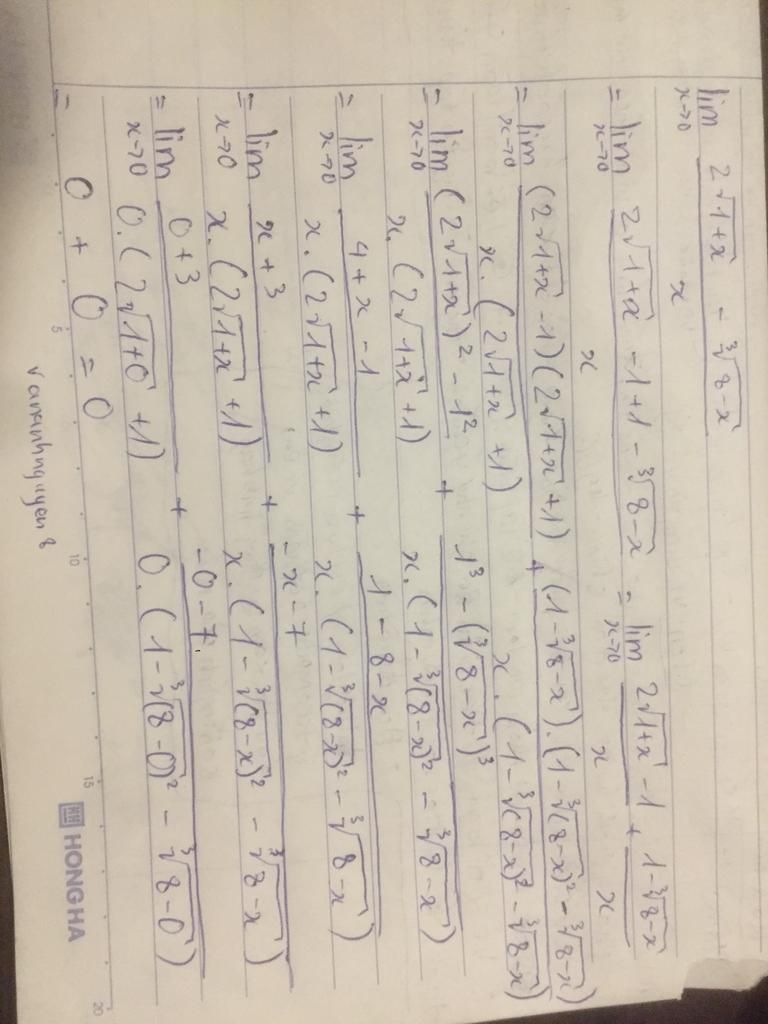 lim x→0 (2√(1+x) - ∛(8-x)) / x
= lim x→0 (2√(1+x) - 1 + 1 - ∛(8-x)) / x = lim x→0 (2√(1+x) - 1) / x + (1 - ∛(8-x)) / x
= lim x→0 (2√(1+x) - 1)(2√(1+x) + 1) / x.(2√(1+x) + 1) + (1 - ∛(8-x)).(1 - ∛(8-x)² - ∛(8-x)) / x.(1 - ∛(8-x)² - ∛(8-x))
= lim x→0 ((2√(1+x))² - 1²) / x.(2√(1+x) + 1) + (1³ - (∛(8-x))³) / x.(1 - ∛(8-x)² - ∛(8-x))
= lim x→0 (4 + x - 1) / x.(2√(1+x) + 1) + (1 - 8 - x) / x.(1 - ∛(8-x)² - ∛(8-x))
= lim x→0 (x + 3) / x.(2√(1+x) + 1) + (-x - 7) / x.(1 - ∛(8-x)² - ∛(8-x))
= lim x→0 (0 + 3) / 0.(2√(1+0) + 1) + (-0 - 7) / 0.(1 - ∛(8-0)² - ∛(8-0))
= 0 + 0 = 0
5 10 15 20
HONG HA